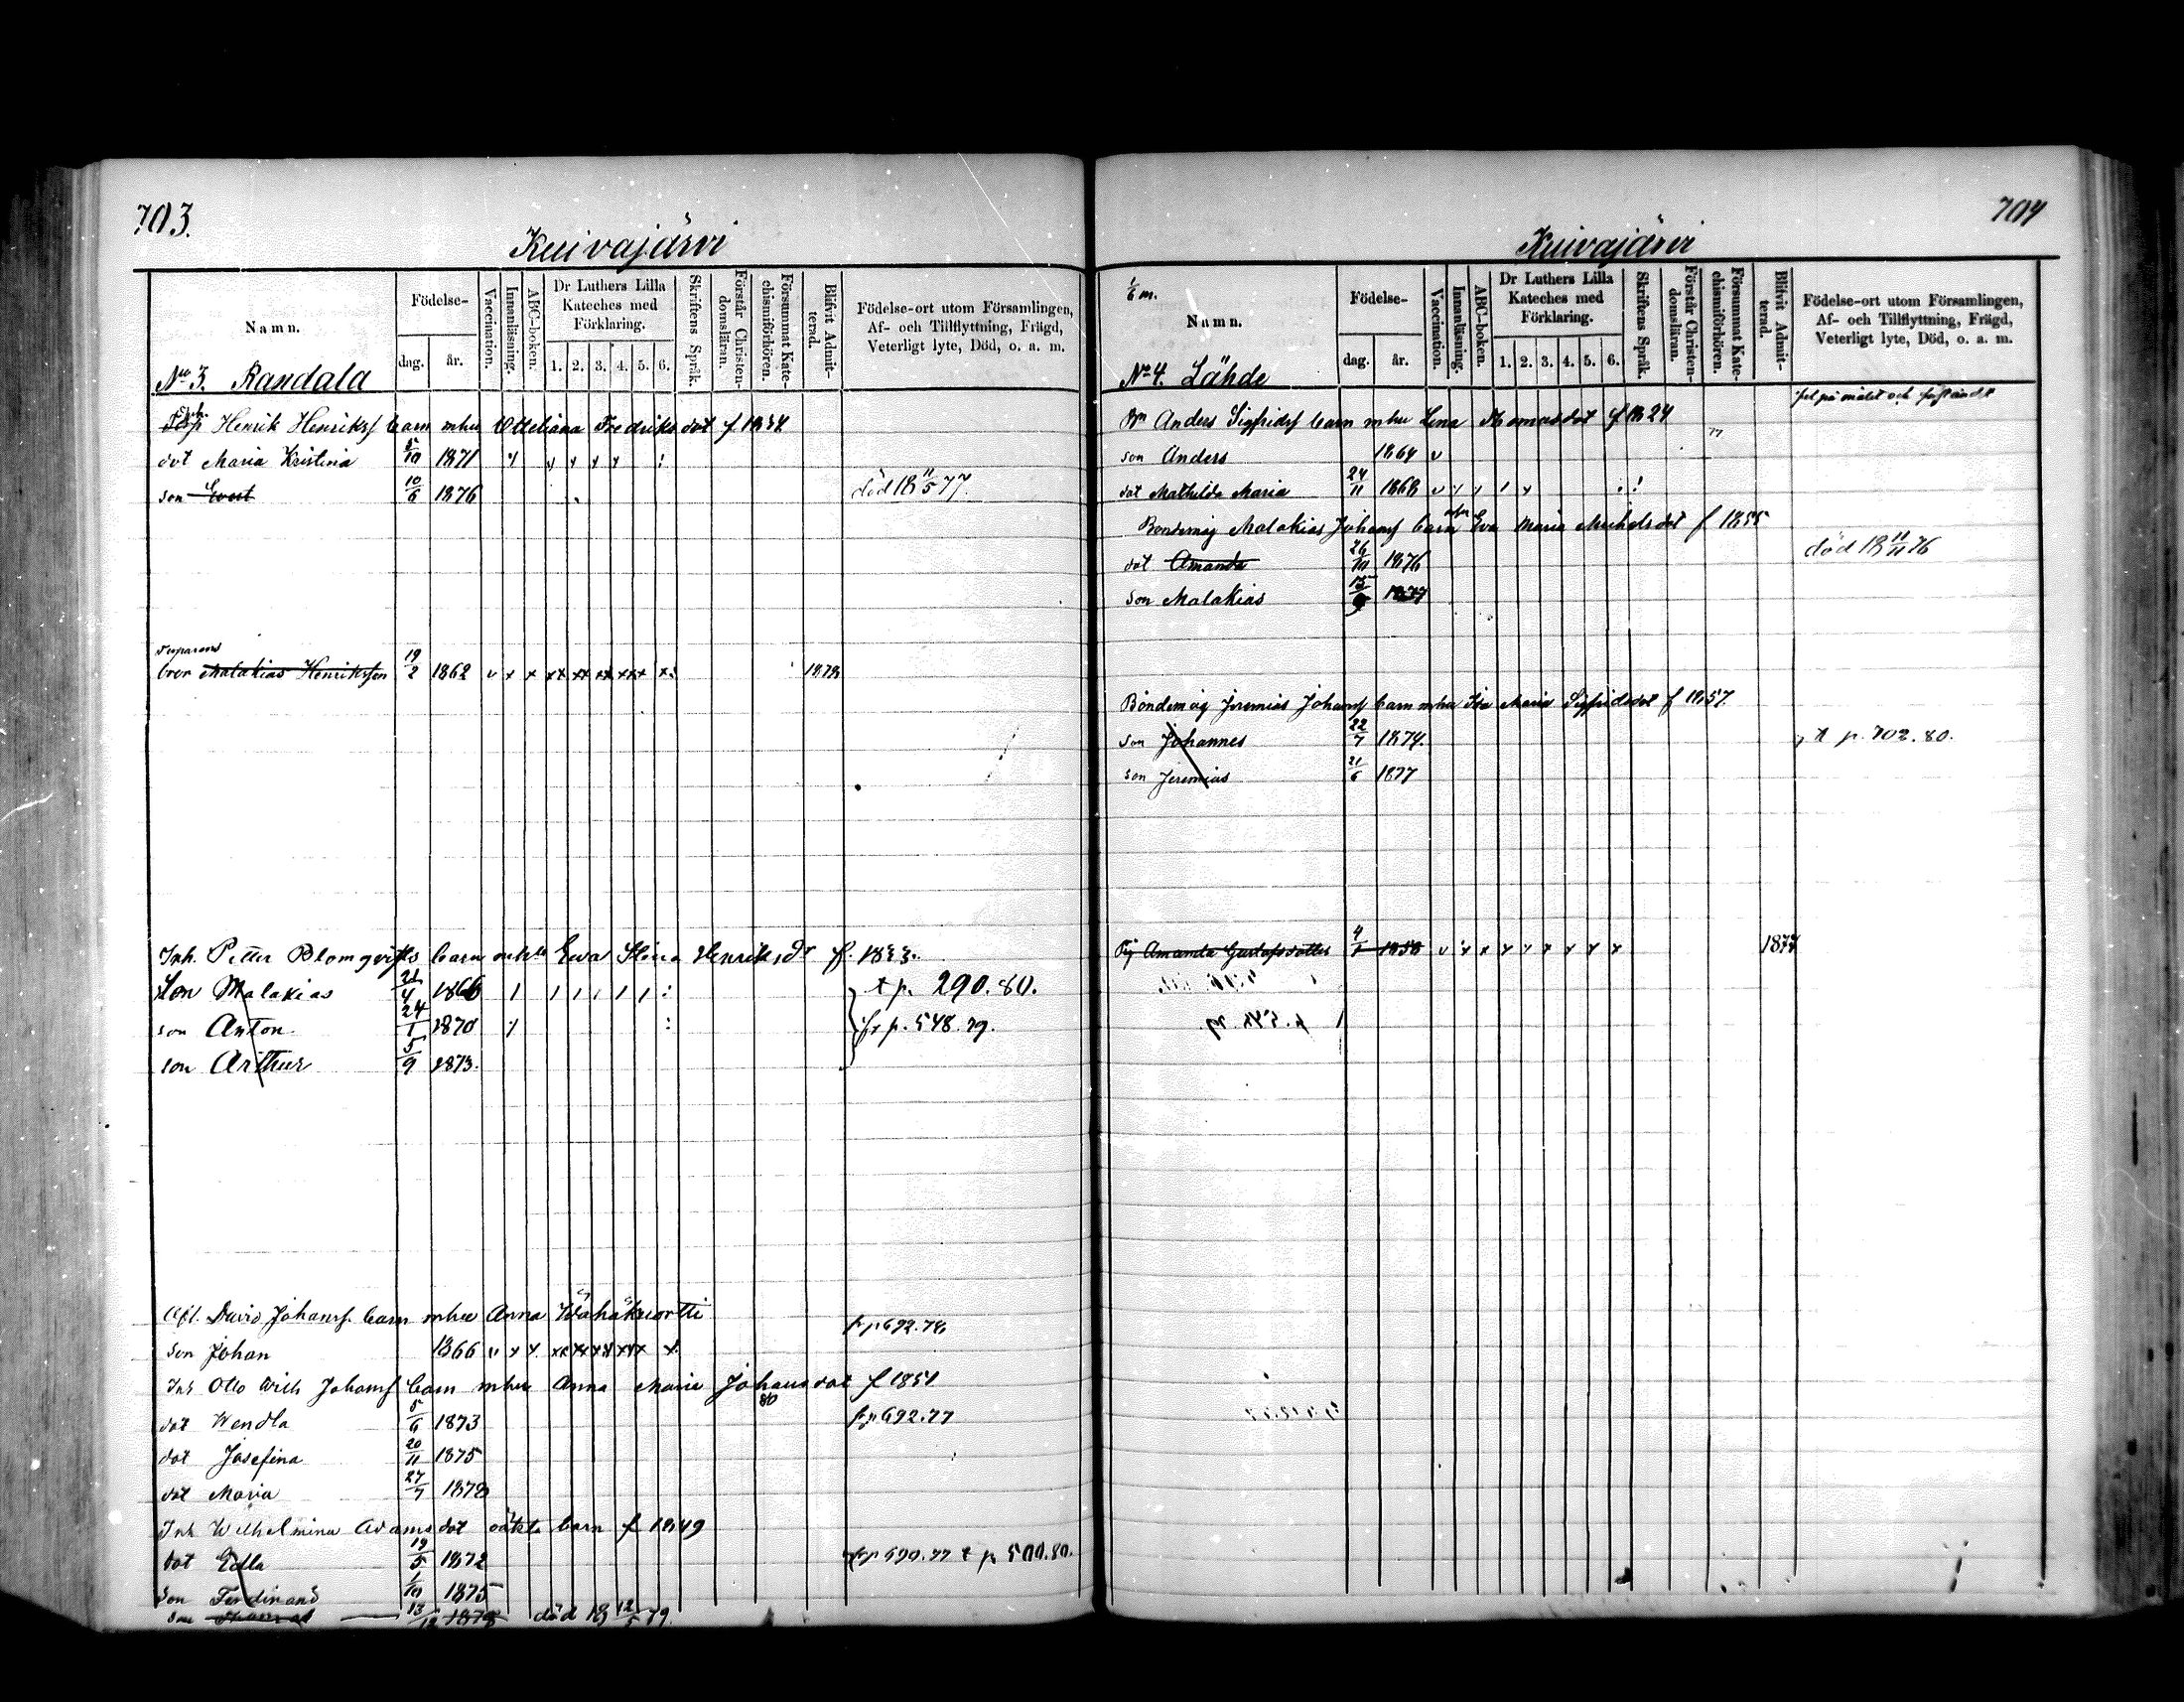 703.
Kuivajärvi
Namn.
Födelse-
dag.
år.
Vaccination.
Innanläsning.
ABC-boken.
Dr Luthers Lilla
Kateches med
Förklaring.
1. 2. 3. 4. 5. 6.
Skriftens Språk.
Förstår Christen-
domsläran.
Försummat Kate-
chismiförhören.
Blifvit Admit-
terad.
Födelse-ort utom Församlingen,
Af- och Tillflyttning, Frägd,
Veterligt lyte, Död, o. a. m.
No 3. Randala
Henrik Henrikss barn mhu Otteliana Fredriksdot f 1834
dot Maria Kristina 5/10 1871
son Evert 10/6 1876 död 18 11/5 77.
bror Malakias Henriksson 19/2 1862 1878
Inh. Petter Blomqvists barn mhu Ewa Stina Henriksdr f. 1833.
Son Malakias 21/4 1866 t p. 290.80.
son Anton 24/1 1870 fr p. 548.79.
son Arthur 5/9 1873.
Afl. David Johanss. barn mhu Anna Wähäkuortti fr p 692.78
son Johan 1866
Inh Otto Wilh Johanss barn mhu Anna Maria Johansdot f 1851
dot Wendla 5/6 1873 fr p 692.77
dot Josefina 20/11 1875
dot Maria 27/7 1878
Inh Wilhelmina Adamsdot oäkta barn f 1849
dot Edla 19/5 1872 fr p 690.77 t p 500.80.
Son Ferdinand 1/10 1875
son 13/12 1878 död 18 12/5 79.
704
Kuivajärvi
1/6 m.
Namn.
Födelse-
dag.
år.
Vaccination.
Innanläsning.
ABC-boken.
Dr Luthers Lilla
Kateches med
Förklaring.
1. 2. 3. 4. 5. 6.
Skriftens Språk.
Förstår Christen-
domsläran.
Försummat Kate-
chismiförhören.
Blifvit Admit-
terad.
Födelse-ort utom Församlingen,
Af- och Tillflyttning, Frägd,
Veterligt lyte, Död, o. a. m.
No 4. Lähde
fel på målet och förståndet
Bn Anders Sigfridss barn mhu Lena Thomasdot f 1824
son Anders 1864
dot Mathilda Maria 24/11 1868
Bondemåg Malakias Johanss barn mhu Eva Maria Michelsdot f 1855
dot Amanda 26/10 1876 död 18 11/11 76
son Malakias 15/9 1877
Bondemåg Jeremias Johanss barn mhu Ida Maria Sigfridsdot f 1857.
son Johannes 22/7 1874. t p. 702.80.
son Jeremias 21/6 1877
Pig Amanda Gustafsdotter 4/1 1858 1877